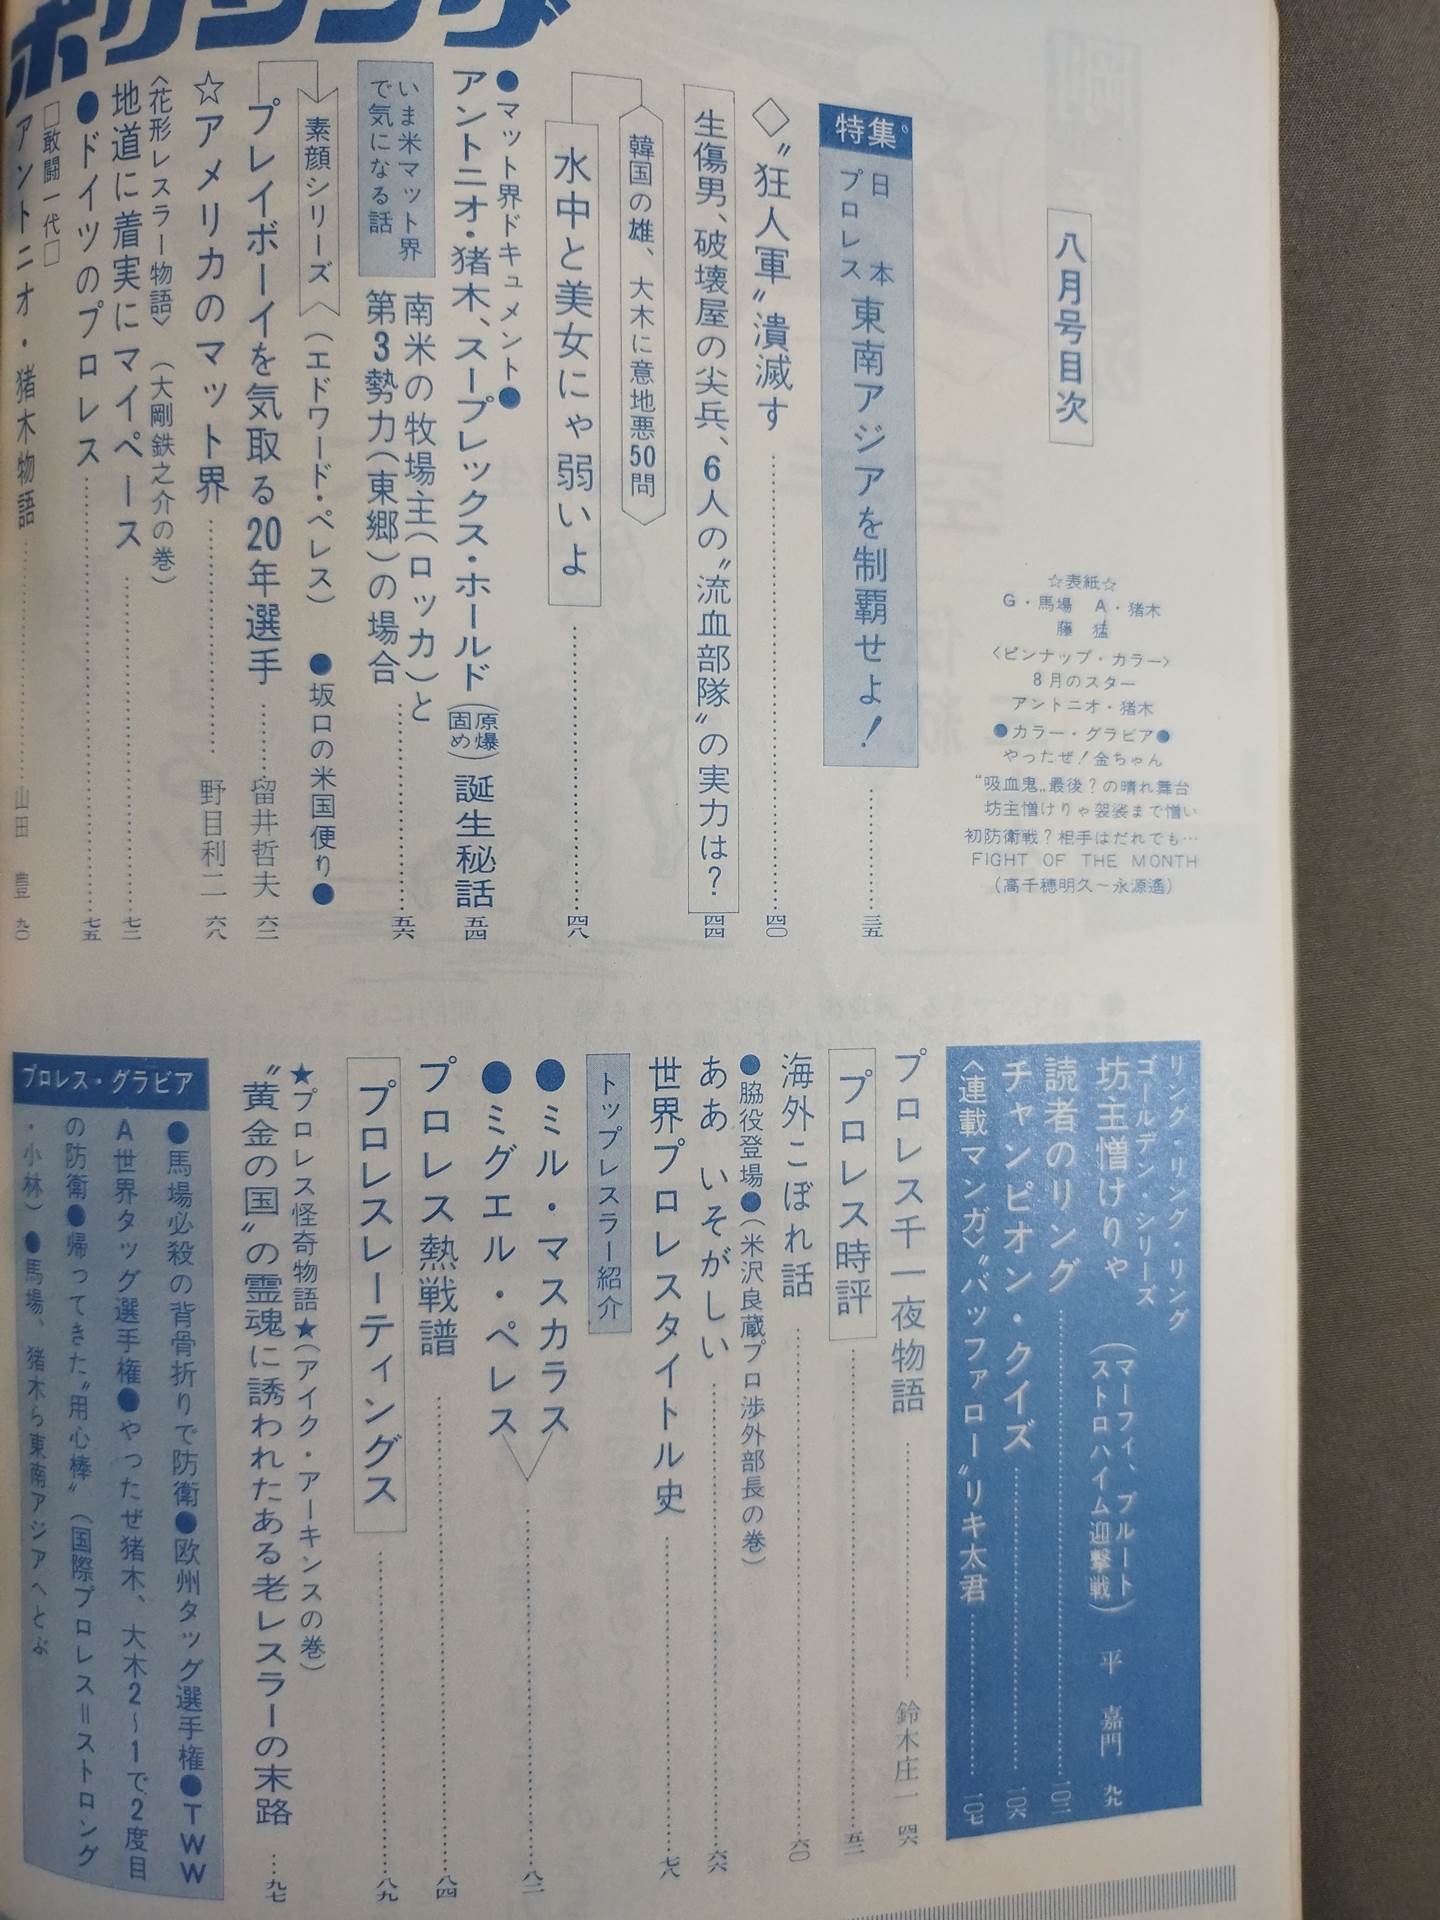 ボクシング
八月号目次
☆表紙☆
G・馬場 A・猪木
藤 猛
〈ピンナップ・カラー〉
8月のスター
アントニオ・猪木
●カラー・グラビア●
やったぜ!金ちゃん
“吸血鬼„最後?の晴れ舞台
坊主憎けりゃ袈裟まで憎い
初防衛戦?相手はだれでも…
FIGHT OF THE MONTH
(高千穂明久~永源遙)
特集
日本プロレス 東南アジアを制覇せよ! 三五
◇〝狂人軍〟潰滅す 四〇
生傷男、破壊屋の尖兵、6人の〝流血部隊〟の実力は? 四四
韓国の雄、大木に意地悪50問
水中と美女にゃ弱いよ 四八
●マット界ドキュメント●
アントニオ・猪木、スープレックス・ホールド(原爆固め)誕生秘話 五四
いま米マット界で気になる話
南米の牧場主(ロッカ)と
第3勢力(東郷)の場合 五六
素顔シリーズ (エドワード・ペレス) ●坂口の米国便り●
プレイボーイを気取る20年選手 留井哲夫 六二
☆アメリカのマット界 野目利二 六八
〈花形レスラー物語〉 (大剛鉄之介の巻)
地道に着実にマイペース 七二
●ドイツのプロレス 七五
□敢闘一代□
アントニオ・猪木物語 山田 豊 九〇
リング・リング・リング
ゴールデン・シリーズ
坊主憎けりゃ (マーフィ、ブルート ストロハイム迎撃戦) 平 嘉門 九九
読者のリング 一〇二
チャンピオン・クイズ 一〇六
〈連載マンガ〉〝バッファロー〟リキ太君 一〇七
プロレス千一夜物語 鈴木庄一 四六
プロレス時評 五二
海外こぼれ話 六〇
●脇役登場●(米沢良蔵プロ渉外部長の巻)
ああ いそがしい 六六
世界プロレスタイトル史 七八
トップレスラー紹介
●ミル・マスカラス
●ミグエル・ペレス 八二
プロレス熱戦譜 八四
プロレスレーティングス 八九
★プロレス怪奇物語★(アイク・アーキンスの巻)
〝黄金の国〟の霊魂に誘われたある老レスラーの末路 九七
プロレス・グラビア
●馬場必殺の背骨折りで防衛●欧州タッグ選手権●TWW
A世界タッグ選手権●やったぜ猪木、大木2~1で2度目
の防衛●帰ってきた〝用心棒〟(国際プロレス=ストロング
・小林)●馬場、猪木ら東南アジアへとぶ